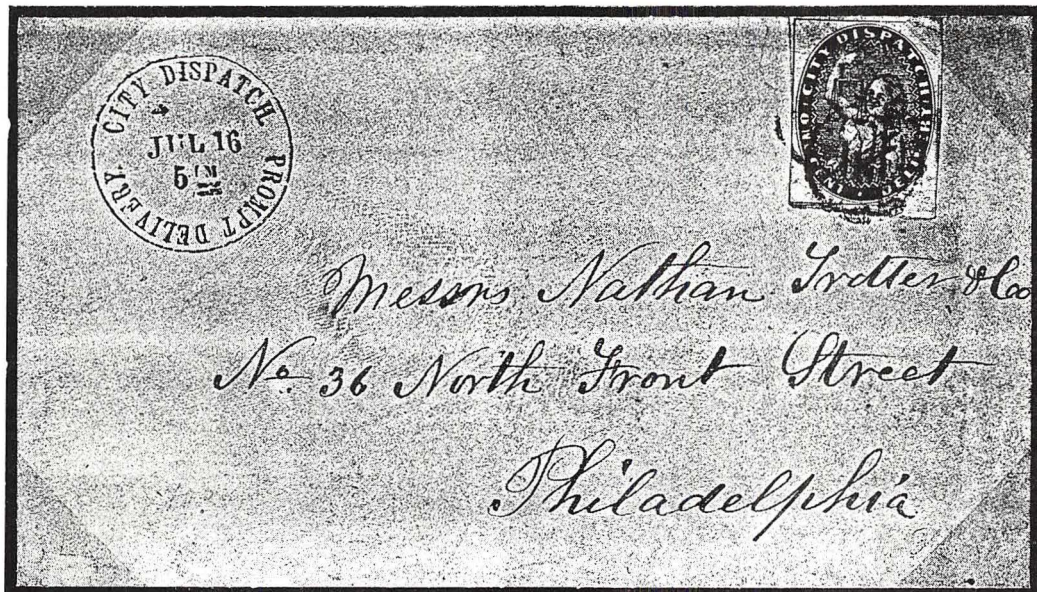 CITY DISPATCH.
PROMPT DELIVERY.
JUL 16
5
CITY DISPATCH
Messrs Nathan Trotter & Co
No 36 North Front Street
Philadelphia